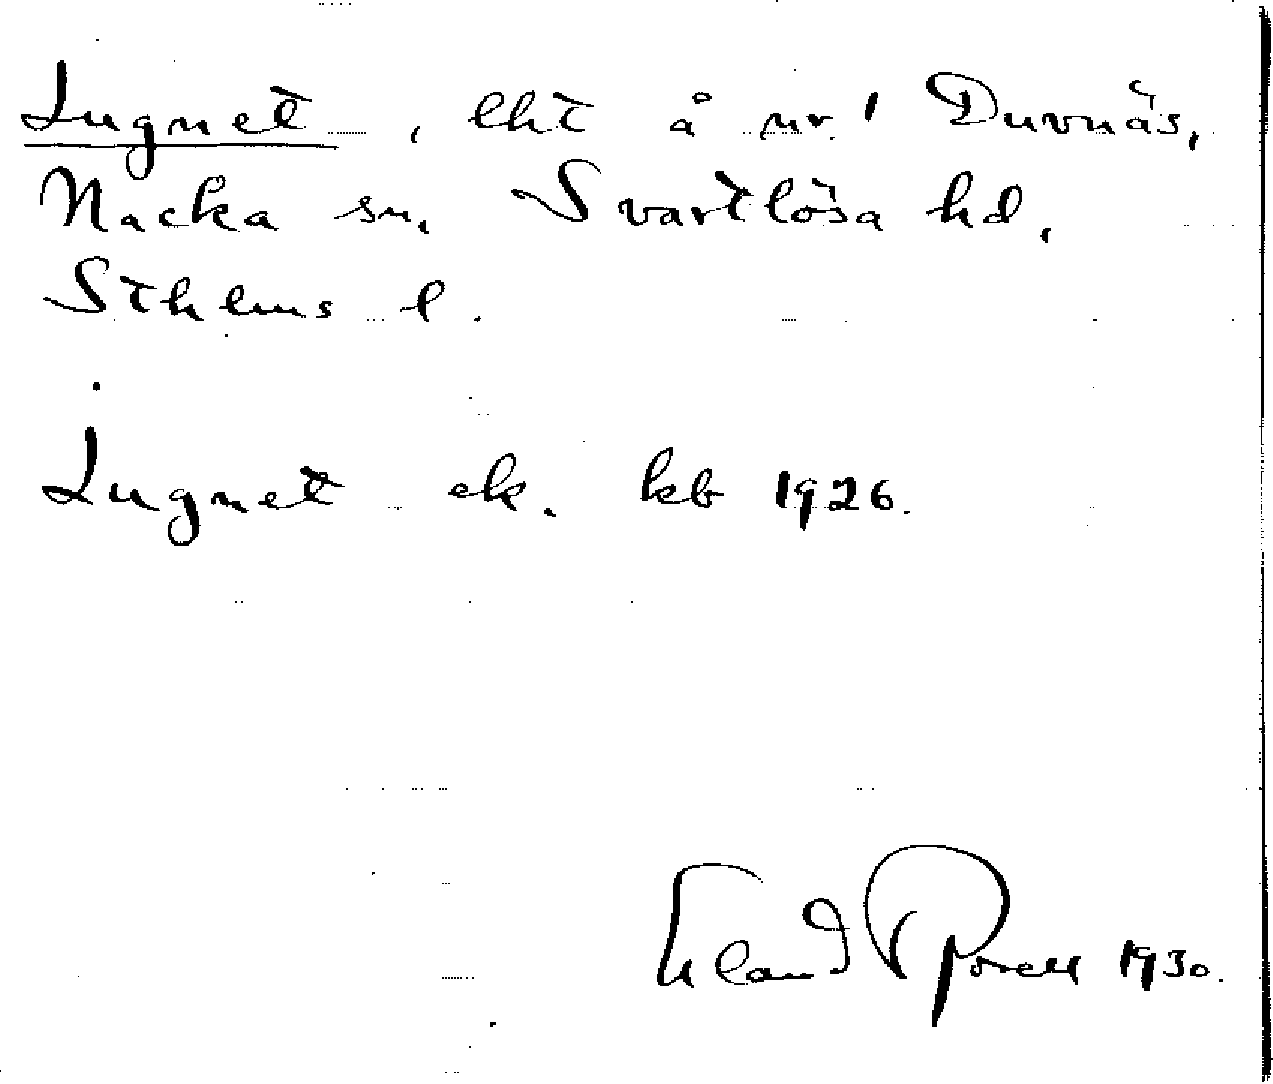 Lugnet, lht å nr 1 Duvnäs,
Nacka sn. Svartlösa hd,
Sthlms l.
Lugnet ek. kb 1926.
1930.